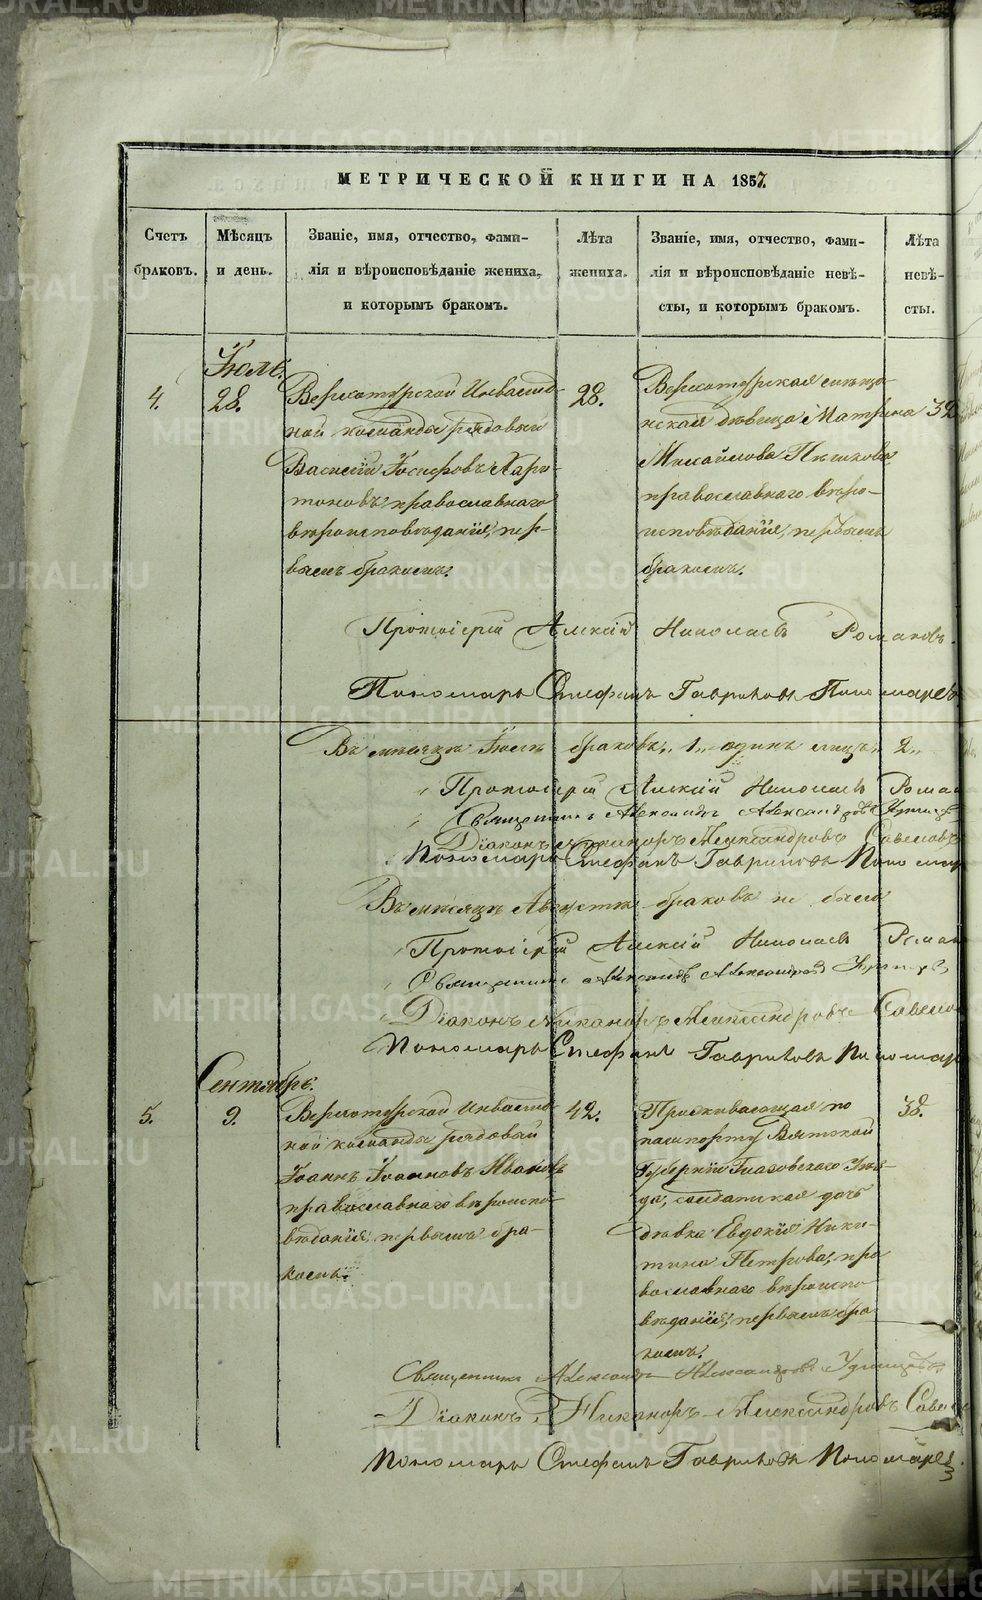 МЕТРИЧЕСКОЙ КНИГИ НА 1857.
Счетъ браковъ.
Мѣсяцъ и день.
Званіе, имя, отчество, фами-
лія и вѣроисповѣданіе жениха,
и которымъ бракомъ.
Лѣта жениха.
Званіе, имя, отчество, фами-
лія и вѣроисповѣданіе невѣ-
сты, и которымъ бракомъ.
Лѣта невѣ-
сты.
Іюль.
4.
28.
Верхотурской Инвалид-
ной команды рядовый
Василій Іосифовъ Хари-
тоновъ, православнаго
вѣроисповѣданія, пер-
вымъ бракомъ.
28.
Верхотурская мѣща-
нская дѣвица Матрона
Михайлова Пѣшкова,
православнаго вѣро-
исповѣданія, первымъ
бракомъ.
32
Протоіерей Алексій Николаевъ Романовъ.
Пономарь Стефанъ Гавриловъ Пономаревъ
Въ мѣсяцѣ Іюлѣ браковъ „1„ одинъ лицъ „2„
Протоіерей Алексій Николаевъ Роман
Священникъ Александръ Александровъ
Діаконъ Никаноръ Александровъ Савеловъ
Пономарь Стефанъ Гавриловъ Пономар
Въ мѣсяцѣ Августѣ браковъ не было
Протоіерей Алексій Николаевъ Роман
Священникъ Александръ Александровъ
Діаконъ Никаноръ Александровъ Савело
Пономарь Стефанъ Гавриловъ Пономар
Сентябрь.
5.
9.
Верхотурской Инвалид-
ной команды рядовый
Іоаннъ Іоанновъ Ивановъ
православнаго вѣроиспо-
вѣданія, первымъ бра-
комъ.
42.
Проживающая по
паспорту Вятской
Губерніи Глазовскаго Уѣз-
да, солдатская дочь
дѣвка Евдокія Ники-
тина Петрова, пра
вославнаго вѣроиспо
вѣданія, первымъ бра
комъ.
38.
Священникъ Александръ Александровъ
Діаконъ Никаноръ Александровъ Савело
Пономарь Стефанъ Гавриловъ Пономарев
METRIKI.GASO-URAL.RU